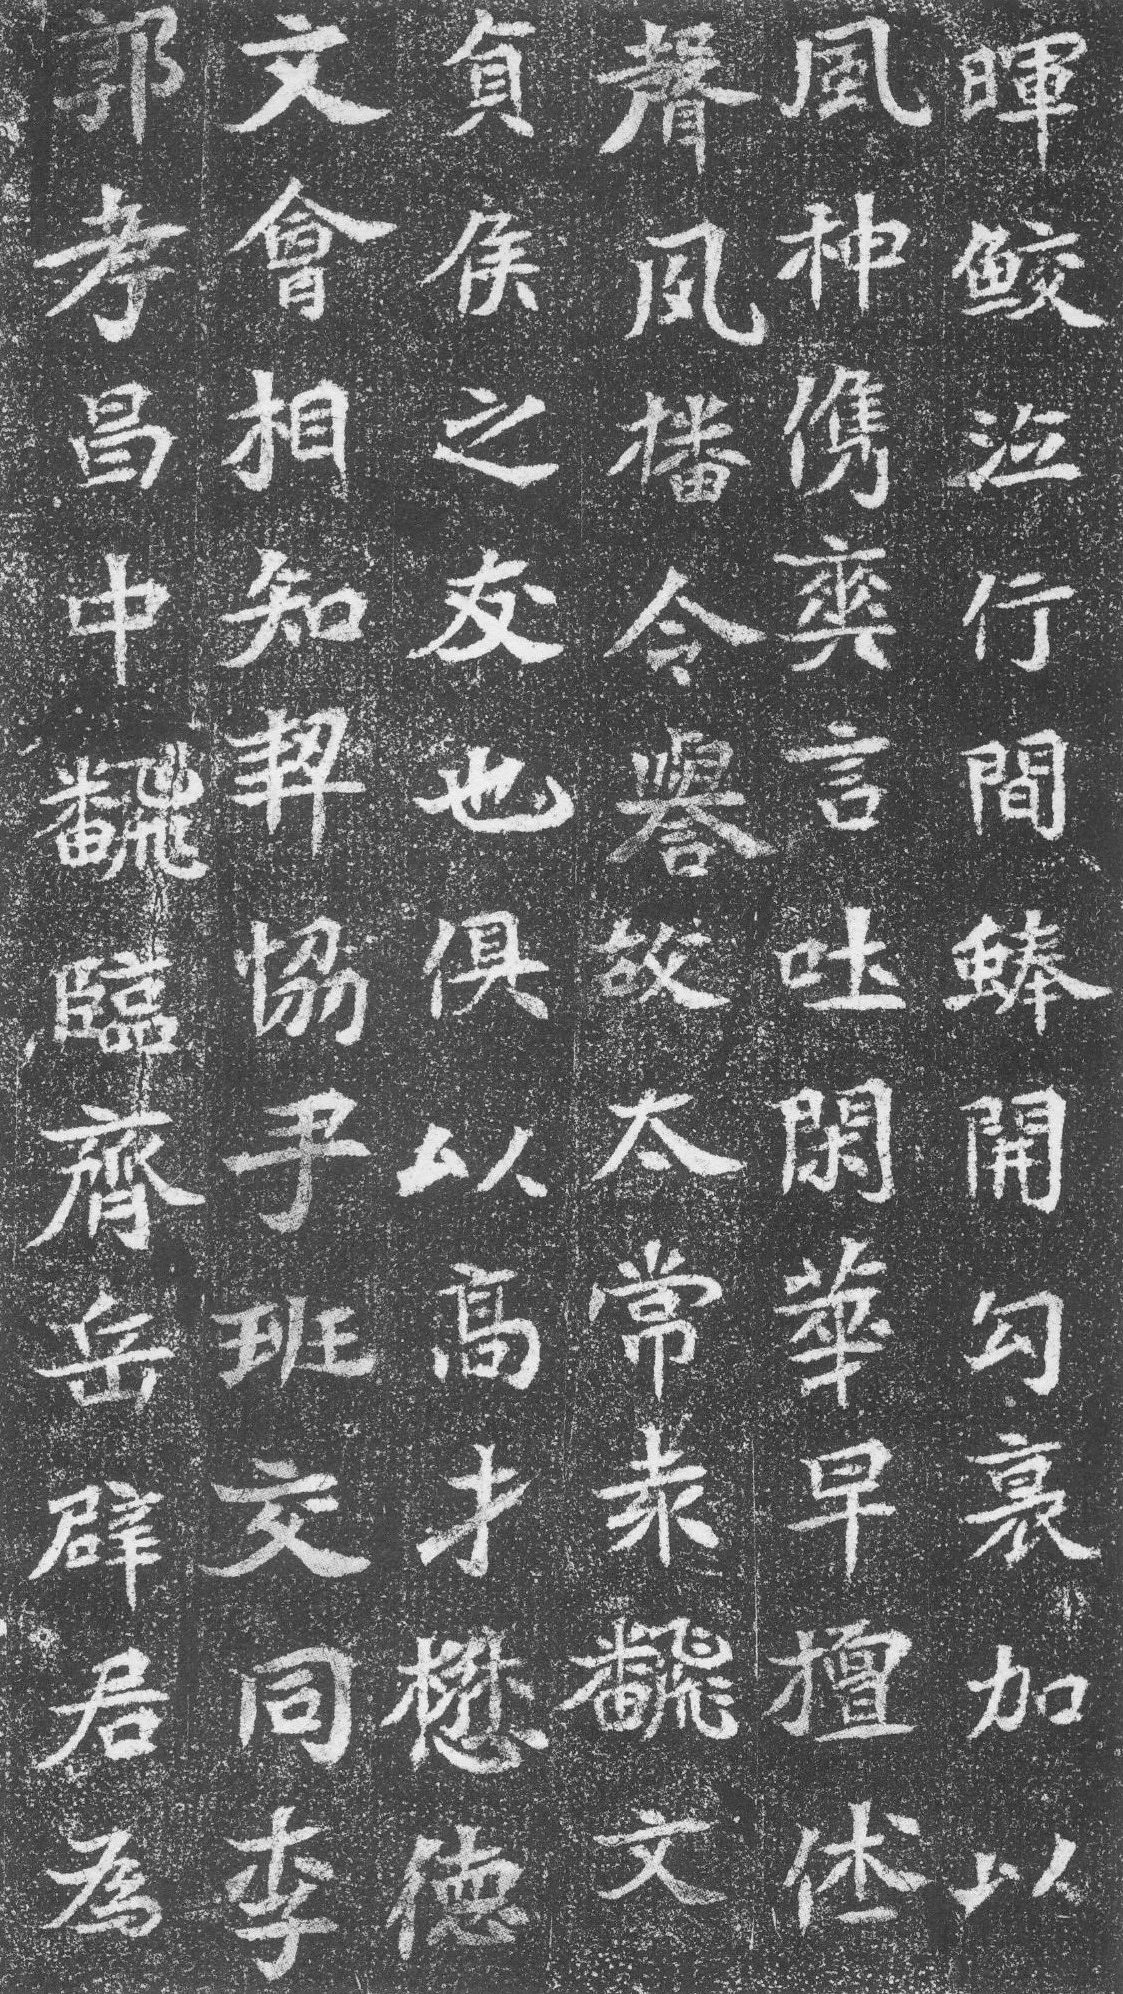 暉鮫泣行間開勾裏加以
風神儁爽言吐閑華早擅休
聲夙播令譽故太常飜文
貞侯之友也俱以高才懋德
文會相知契協尹班交同李
郭孝昌中飜臨齊岳辟君為